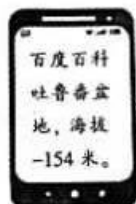 百度百科
吐鲁番盆
地，海拔
-154 米。